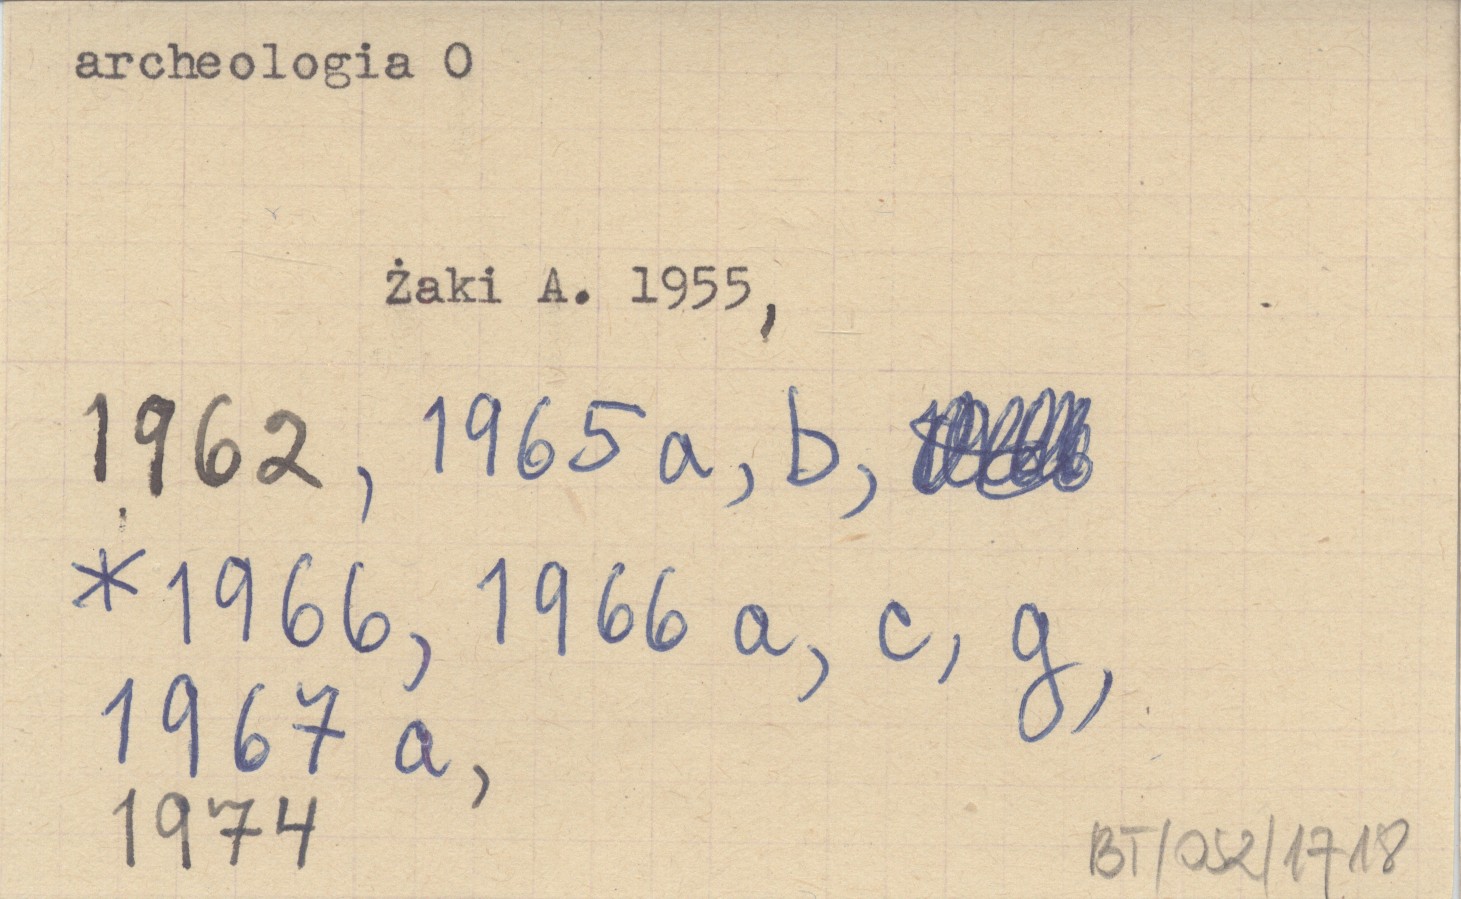 archeologia O
Żaki A. 1955,
1962, 1965 a, b,
*1966, 1966 a, c, g,
1967 a,
1974
BT/052/1718